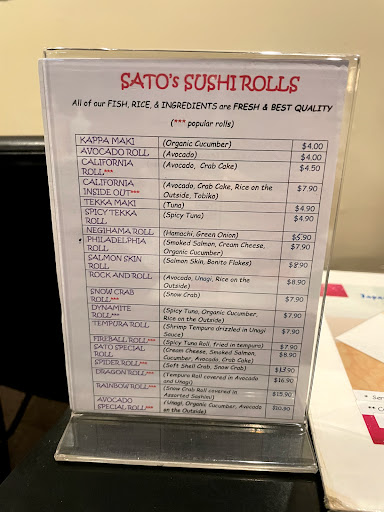 SATO's SUSHI ROLLS
All of our FISH, RICE, & INGREDIENTS are FRESH & BEST QUALITY
(*** popular rolls)
KAPPA MAKI (Organic Cucumber) $4.00
AVOCADO ROLL (Avocado) $4.00
CALIFORNIA (Avocado, Crab Cake) $4.50
ROLL***
CALIFORNIA (Avocado, Crab Cake, Rice on the $7.90
INSIDE OUT*** Outside, Tobiko)
TEKKA MAKI (Tuna) $4.90
SPICY TEKKA (Spicy Tuna) $4.90
ROLL
NEGIHAMA ROLL (Hamachi, Green Onion)
PHILADELPHIA (Smoked Salmon, Cream Cheese, $7.90
ROLL Organic Cucumber)
SALMON SKIN (Salmon Skin, Bonito Flakes)
ROLL
ROCK AND ROLL (Avocado, Unagi, Rice on the $8.90
Outside)
SNOW CRAB (Snow Crab) $7.90
ROLL***
DYNAMITE (Spicy Tuna, Organic Cucumber, $7.90
ROLL*** Rice on the Outside)
TEMPURA ROLL (Shrimp Tempura drizzled in Unagi $7.90
Sauce)
FIREBALL ROLL*** (Spicy Tuna Roll, fried in tempura) $7.90
SATO SPECIAL (Cream Cheese, Smoked Salmon, $8.90
ROLL Cucumber, Avocado, Crab Cake)
SPIDER ROLL*** (Soft Shell Crab, Snow Crab)
DRAGON ROLL*** (Tempura Roll covered in Avocado $16.90
and Unagi)
RAINBOW ROLL*** (Snow Crab Roll covered in $15.90
Assorted Sashimi)
AVOCADO (Unagi, Organic Cucumber, Avocado
SPECIAL ROLL*** on the Outside)